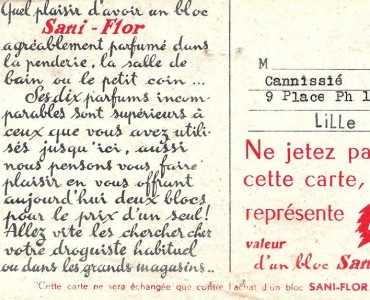 Quel plaisir d'avoir un bloc
Sani-Flor
agréablement parfumé dans
la penderie, la salle de
bain ou le petit coin...
Ses dix parfums incom-
parables sont supérieurs à
ceux que vous avez utili-
sés jusqu'ici, aussi
nous pensons vous faire
plaisir en vous offrant
aujourd'hui deux blocs
pour le prix d'un seul!
Allez vite les chercher chez
votre droguiste habituel
ou dans les grands magasins..
M
Cannissié
9 Place Ph l
Lille
Ne jetez pa
cette carte,
représente
valeur
d'un bloc San
Cette carte ne sera échangée que contre l'achat d'un bloc SANI-FLOR